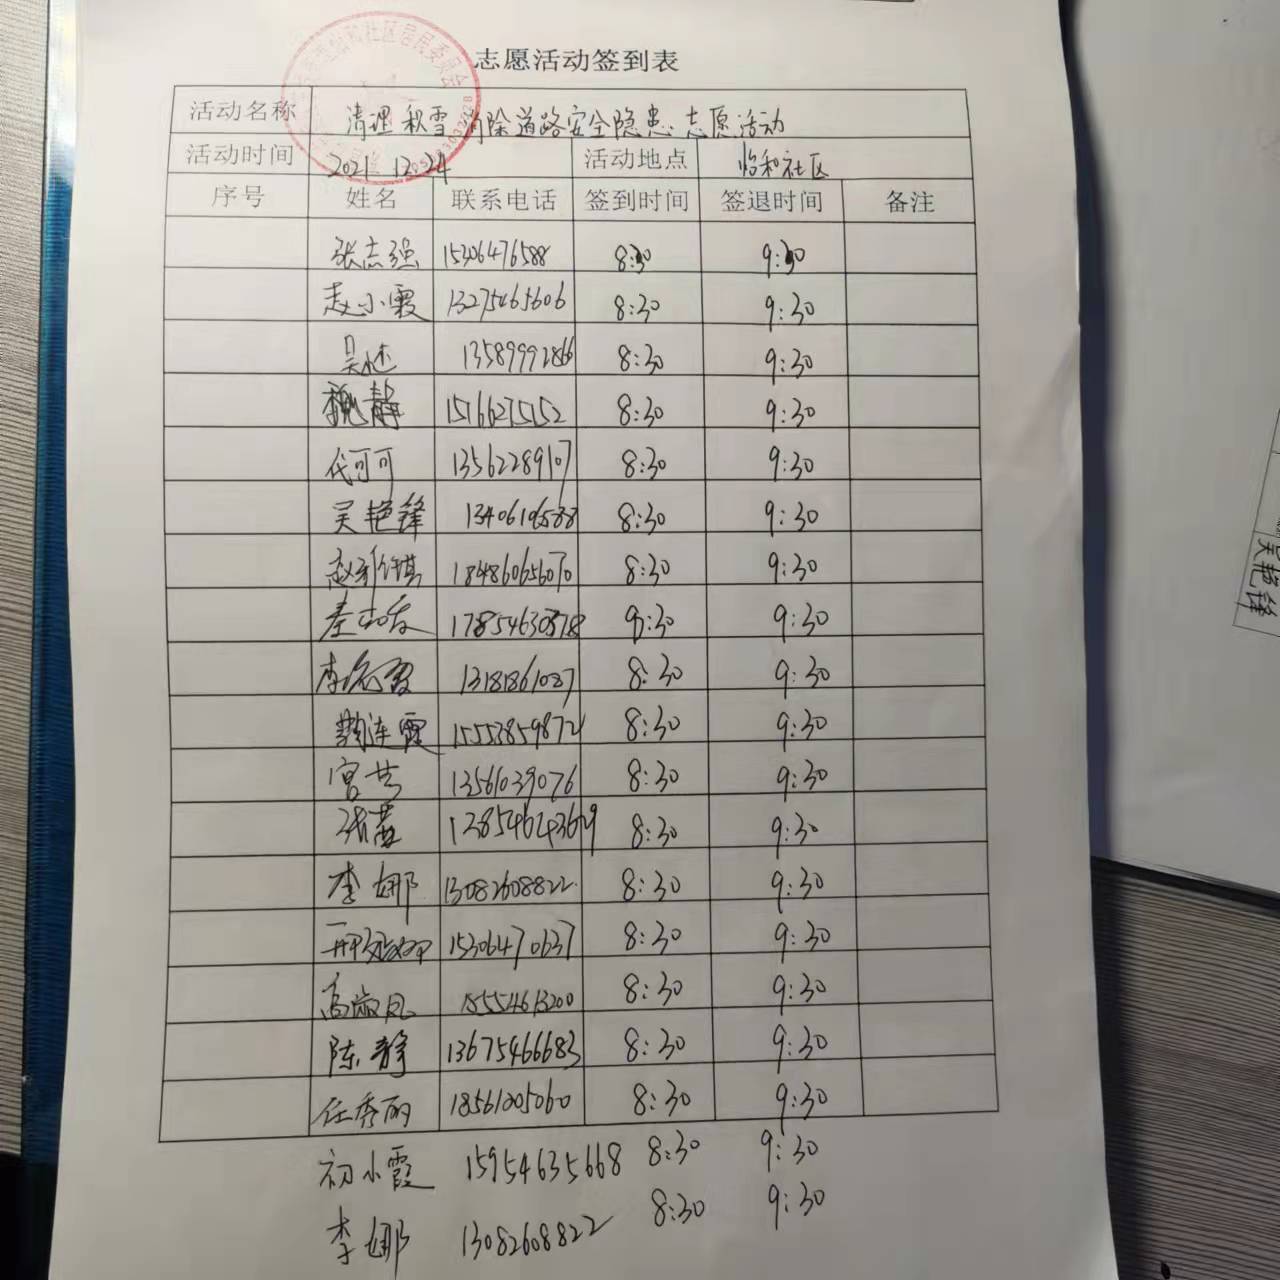 志愿活动签到表
活动名称 清理积雪消除道路安全隐患志愿活动
活动时间 2021 12.24 活动地点 怡和社区
序号 姓名 联系电话 签到时间 签退时间 备注
张志强 15306476588 8:30 9:30
赵小霞 13275465606 8:30 9:30
吴 13589992866 8:30 9:30
魏静 15766275152 8:30 9:30
代可可 13562289107 8:30 9:30
吴艳锋 13406196588 8:30 9:30
赵 184860656070 8:30 9:30
17854630878 9:30 9:30
李 13181861027 8:30 9:30
连霞 15553859872 8:30 9:30
宫 13561039076 8:30 9:30
张 8:30 9:30
李娜 13082608822 8:30 9:30
15306470637 8:30 9:30
高 18554613200 8:30 9:30
陈静 13675466683 8:30 9:30
任秀丽 18561005060 8:30 9:30
初小霞 15954635668 8:30 9:30
李娜 13082608822 8:30 9:30
吴艳锋